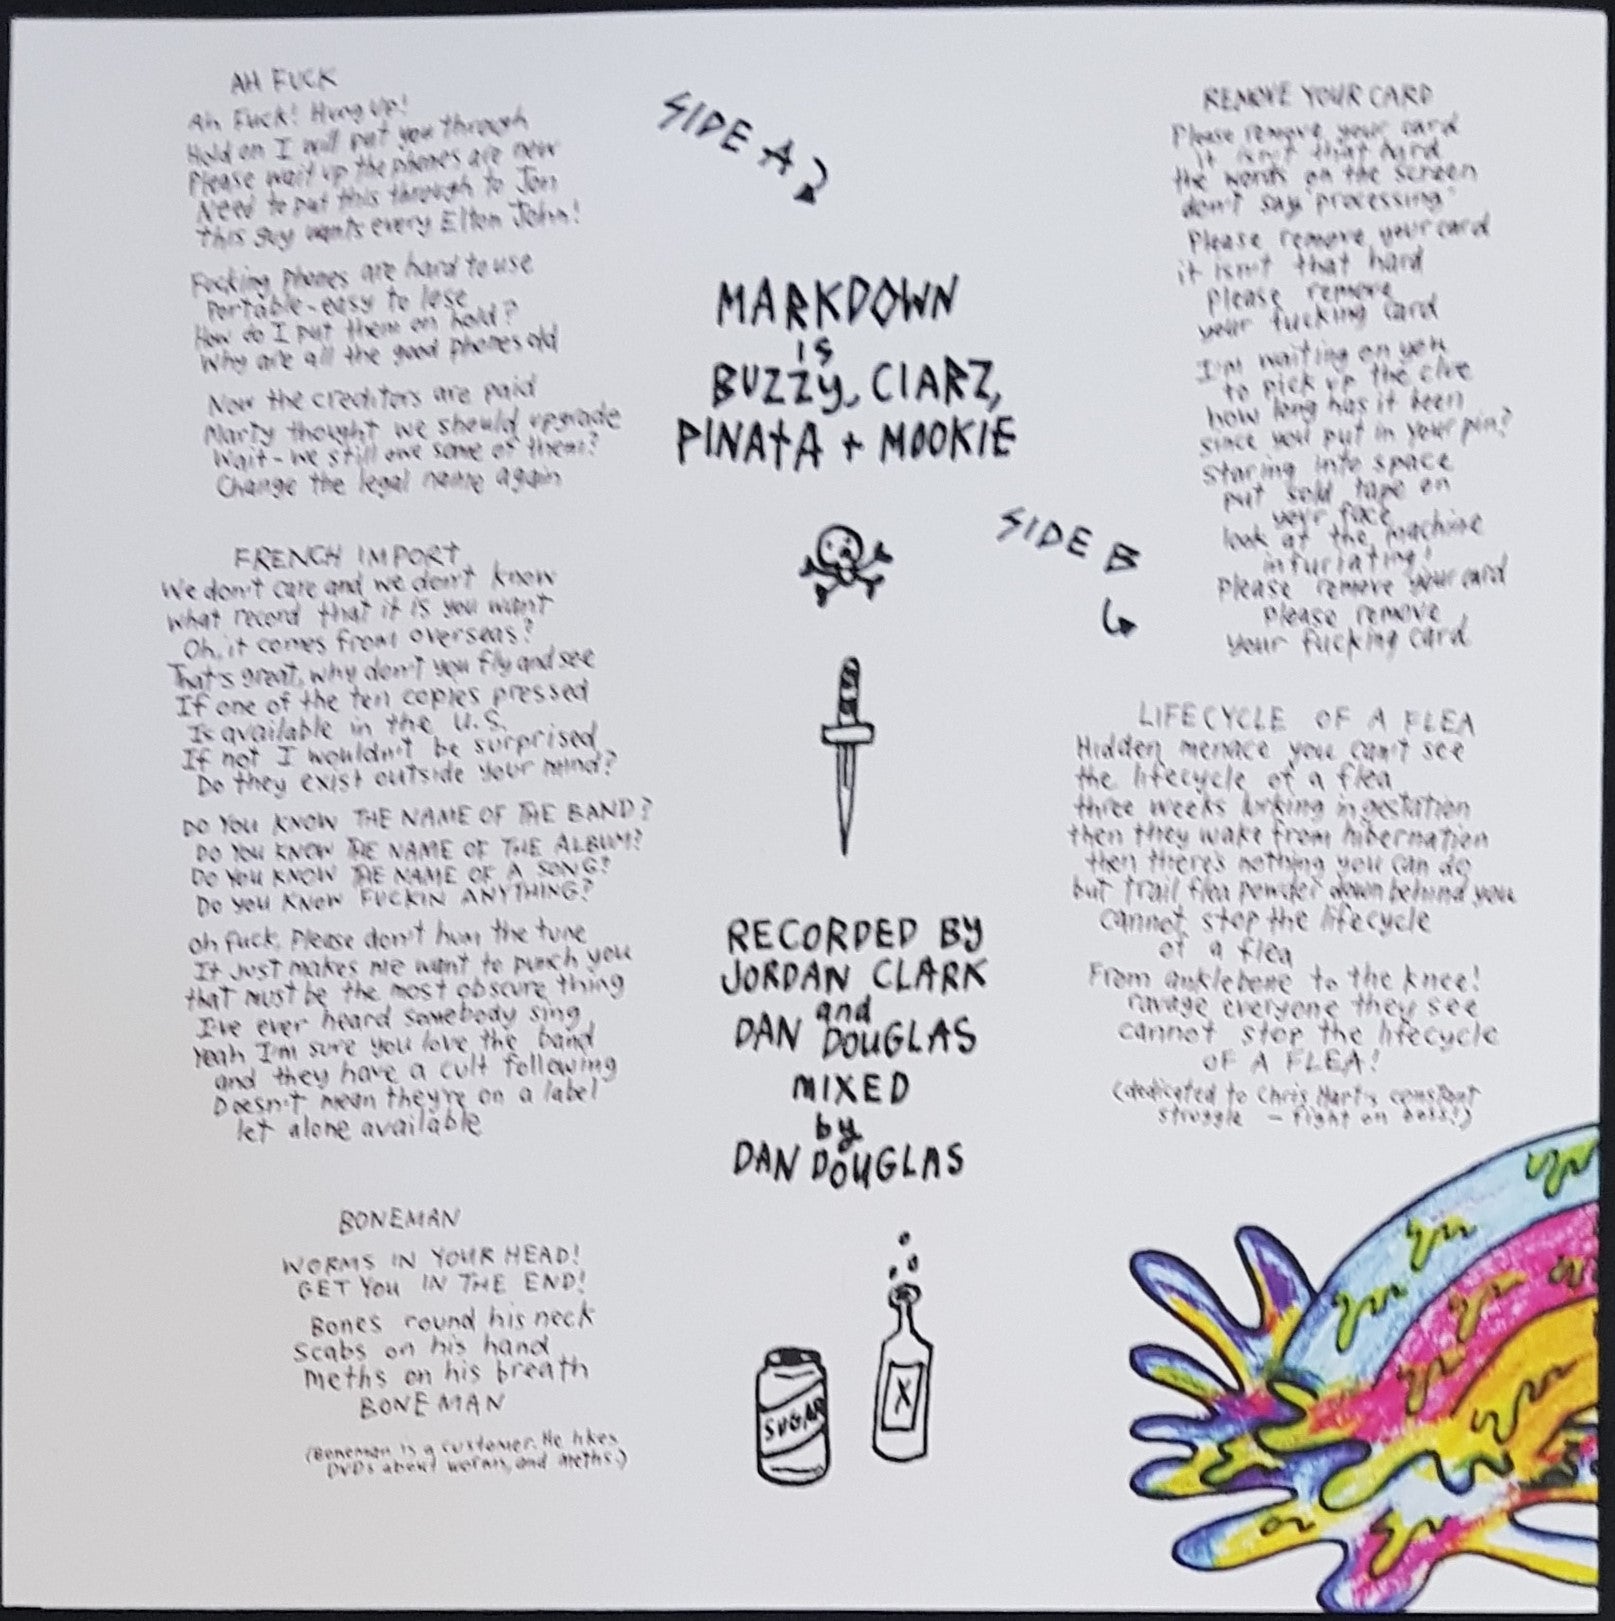 AH FUCK
Ah Fuck! Hung Up!
Hold on I will put you through
Please wait up the phones are new
Need to put this through to Jon
this guy wants every Elton John!
Fucking Phones are hard to use
Portable-easy to lose
How do I put them on hold?
Why are all the good phones old
Now the creditors are paid
Marty thought we should upgrade
Wait - we still owe some of them?
Change the legal name again
FRENCH IMPORT
We don't care and we don't know
What record that it is you want
Oh, it comes from overseas?
That's great, why don't you fly and see
If one of the ten copies pressed
Is available in the U.S.
If not I wouldn't be surprised
Do they exist outside your mind?
DO YOU KNOW THE NAME OF THE BAND?
DO YOU KNOW THE NAME OF THE ALBUM?
DO YOU KNOW THE NAME OF A SONG?
DO YOU KNOW FUCKIN ANYTHING?
oh fuck, Please don't hum the tune
It Just makes me want to punch you
that must be the most obscure thing
I've ever heard somebody sing
Yeah I'm sure you love the band
and they have a cult following
Doesn't mean they're on a label
let alone available
BONEMAN
WORMS IN YOUR HEAD!
GET YOU IN THE END!
Bones round his neck
Scabs on his hand
meths on his breath
BONEMAN
(Boneman is a customer. He likes
DVDs about worms, and meths.)
SIDE A
MARKDOWN
is
BUZZY, CIARZ,
PINATA + MOOKIE
SIDE B
RECORDED BY
JORDAN CLARK
and
DAN DOUGLAS
MIXED
by
DAN DOUGLAS
SUGAR
X
REMOVE YOUR CARD
Please remove your card
it isn't that hard
the words on the screen
don't say "processing"
Please remove your card
it isn't that hard
please remove
your fucking card
I'm waiting on you
to pick up the clue
how long has it been
since you put in your pin?
staring into space
put sold tape on
your face
look at the machine
infuriating!
Please remove your card
please remove
your fucking card
LIFECYCLE OF A FLEA
Hidden menace you can't see
the lifecycle of a flea
three weeks lurking in gestation
then they wake from hibernation
then there's nothing you can do
but trail flea powder down behind you
cannot stop the lifecycle
of a flea
From anklebone to the knee!
ravage everyone they see
cannot stop the lifecycle
OF A FLEA!
(dedicated to Chris Hart's constant
struggle - fight on boss!)